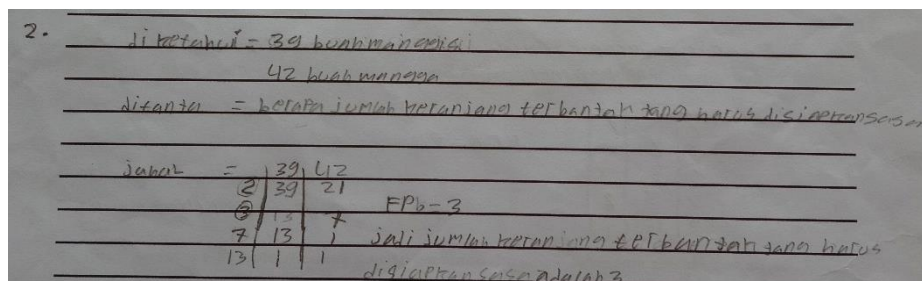 2.
diketahui = 39 buah manggis
42 buah mangga
ditanya = berapa jumlah keranjang terbanyak yang harus disiapkan sasa
jawab = 39 42
2 39 21
3 13 7
7 13 1
13 1 1
FPb = 3
jadi jumlah keranjang terbanyak yang harus
disiapkan sasa adalah 3